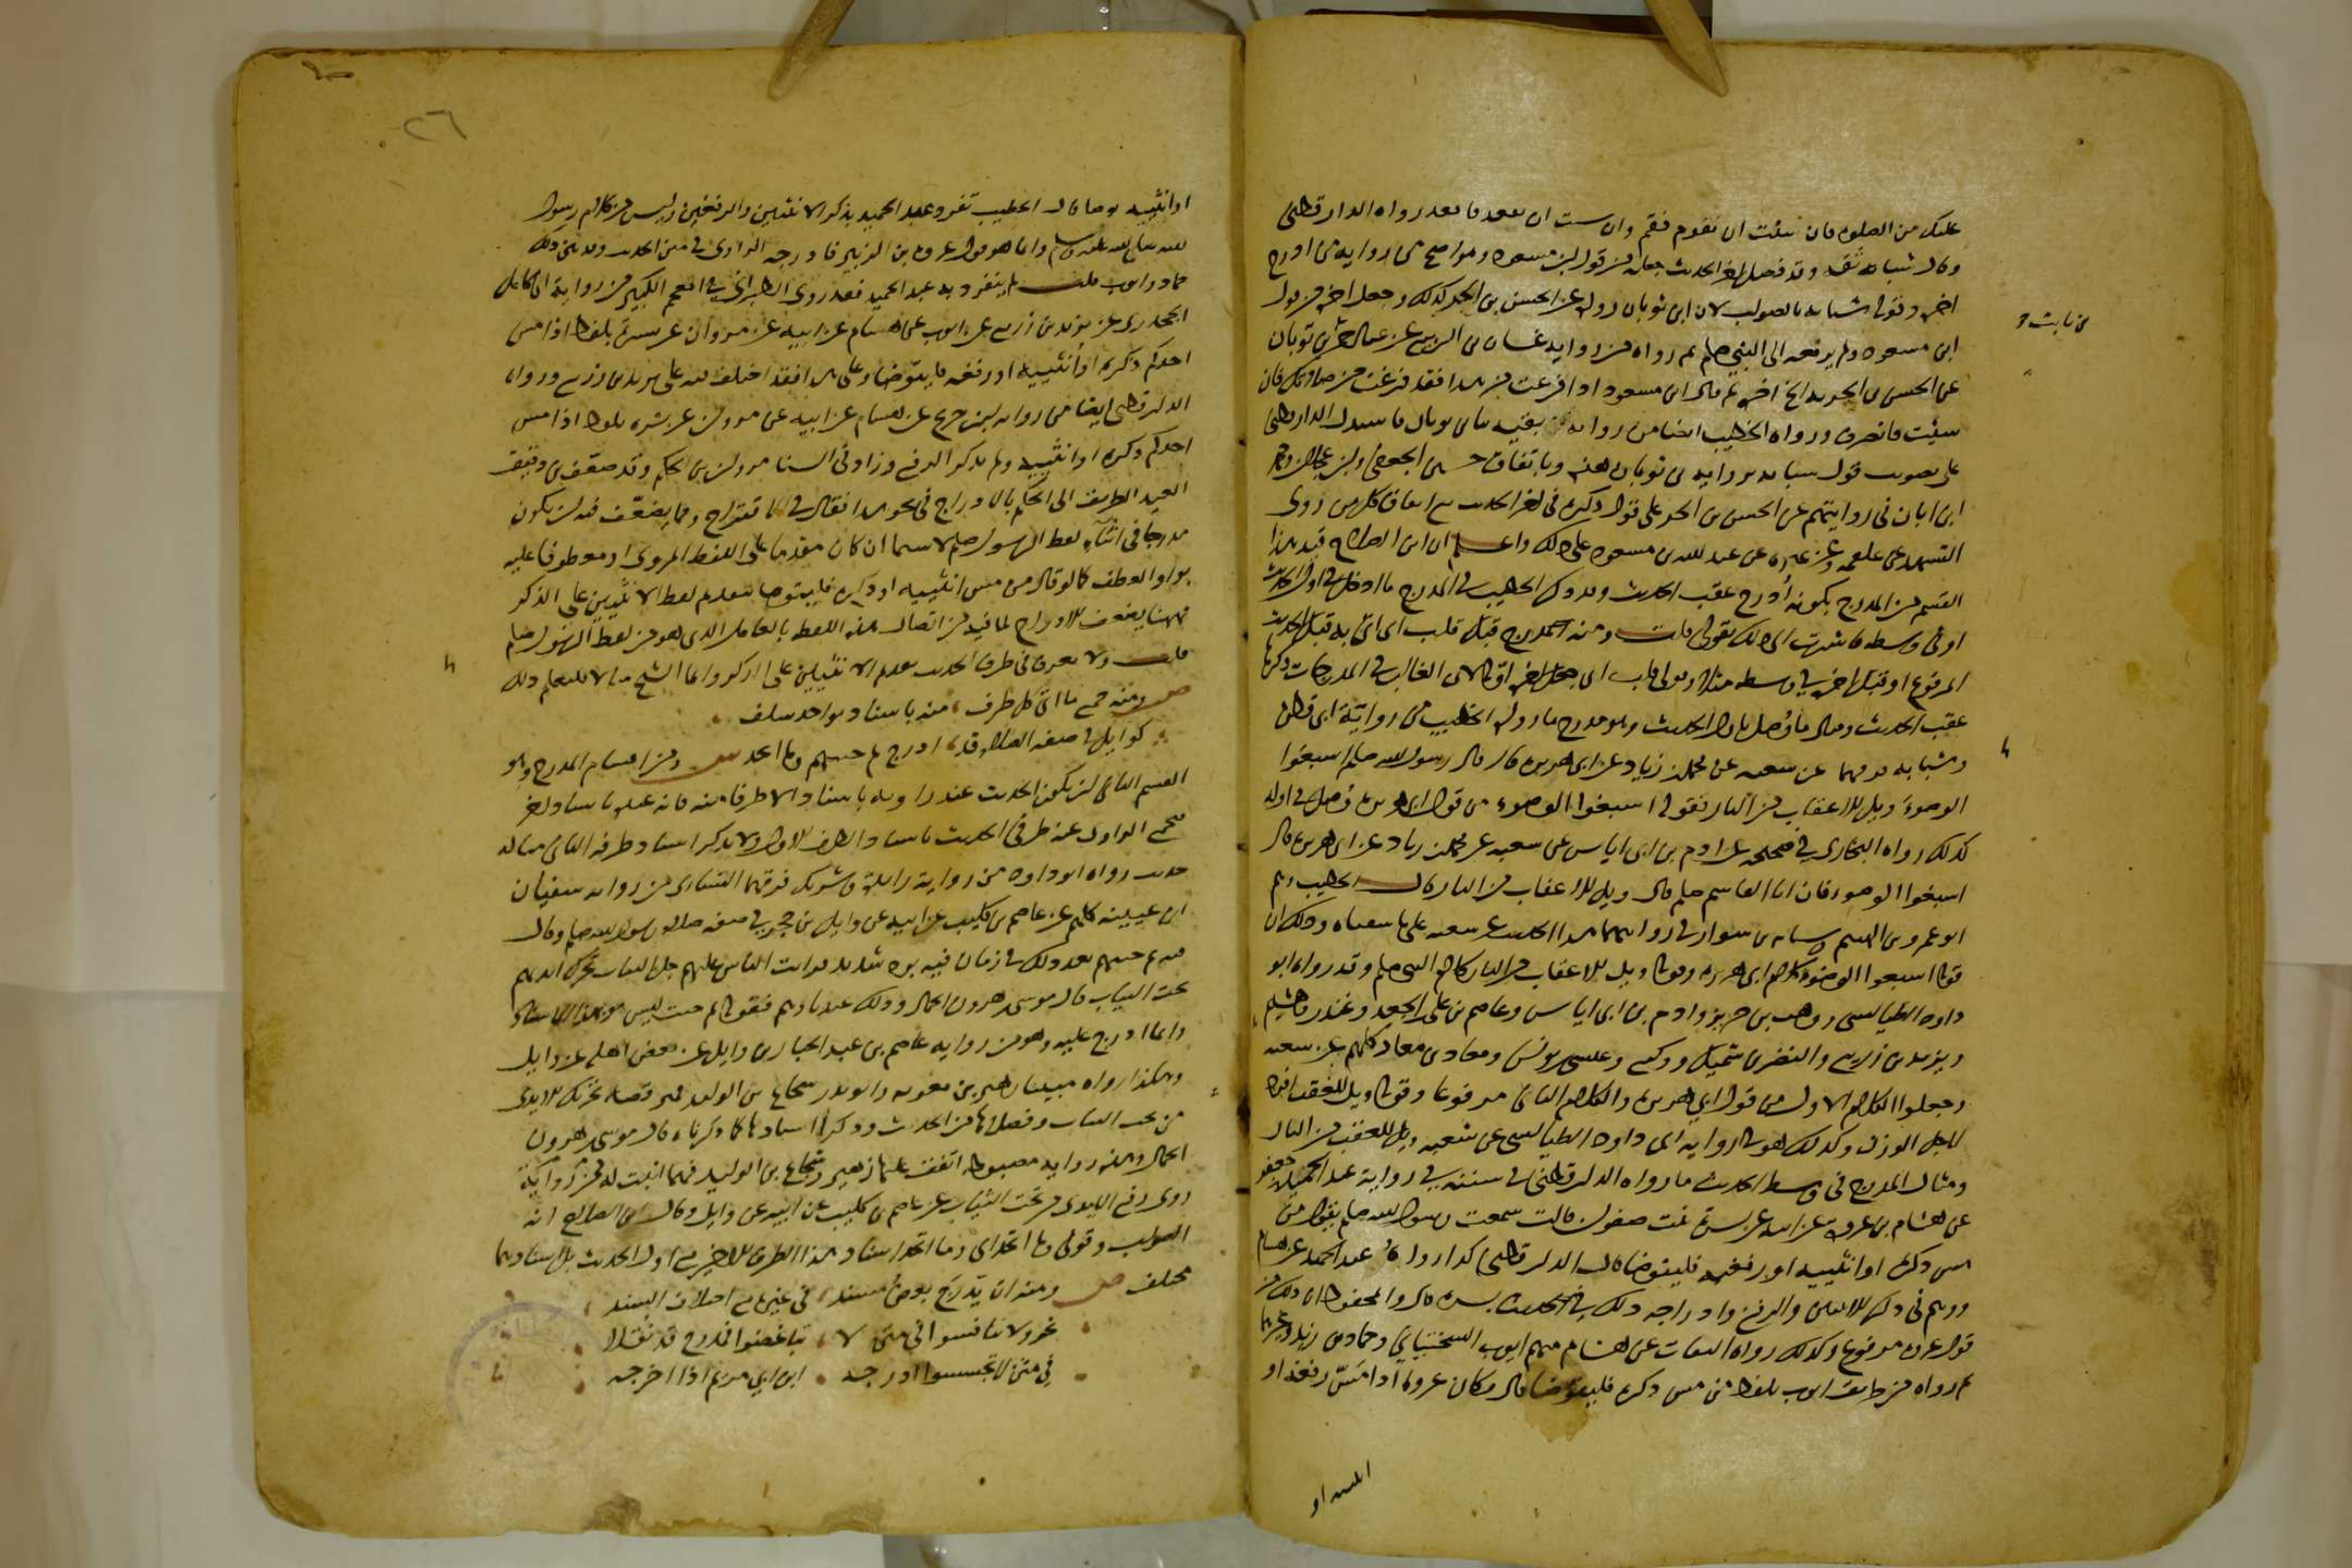 عليك من الصلوة فان شئت ان تقوم فقم وان شئت ان تقعد فاقعد رواه الدارقطني
وقال شبابة ثقة وقد فصل اخر الحديث جعله من قول ابن مسعود وهو اصح من رواية من ادرج
اخره وقول شبابة بالصواب لان ابن ثوبان رواه عن الحسن بن الحر كذلك وجعل اخره من قول
ابن مسعود ولم يرفعه الى النبي صلعم ثم رواه من رواية غسان بن الربيع عن عبد الرحمن بن ثوبان
بن ثابت
عن الحسن بن الحر به الخ اخره ثم قال ابن مسعود اذا فرغت من هذا فقد فرغت من صلاتك فان
شئت فانصرف ورواه الخطيب ايضا من رواية بقية ثنا ابن ثوبان فاستدل الدارقطني
على تصويب قول شبابة برواية ابن ثوبان هذه وباتفاق حسين الجعفي وابن عجلان ومحمد
ابن ابان في روايتهم عن الحسن بن الحر على ترك ذكره في اخر الحديث مع اتفاق كل من روى
التشهد عن علقمة وعن غيره عن عبد الله بن مسعود على ذلك واعلم ان ابن الصلاح قيد هذا
القسم من المدرج بكونه أدرج عقب الحديث وقد ذكر الخطيب في المدرج ما ادخل في اول الحديث
او في وسطه فاشرت الى ذلك بقولي قلت ومنه مدرج قبل قلب اي اتى به قبل الحديث
المرفوع او قبل اخره في وسطه مثلا وقولي قلب اي جعل اخره اوله لان الغالب في المدرجات ذكرها
عقب الحديث ومثال ما وصل باول الحديث وهو مدرج ما رواه الخطيب من رواية ابي قطن
وشبابة فرقهما عن شعبة عن محمد بن زياد عن ابي هريرة قال قال رسول الله صلعم اسبغوا
الوضوء ويل للاعقاب من النار فقوله اسبغوا الوضوء من قول ابي هريرة وصل في اوله
كذلك رواه البخاري في صحيحه عن ادم بن ابي اياس عن شعبة عن محمد بن زياد عن ابي هريرة قال
اسبغوا الوضوء فان ابا القاسم صلعم قال ويل للاعقاب من النار قال الخطيب وهم
ابو عمرو بن الهيثم وشبابة بن سوار في روايتهما هذا الحديث عن شعبة على ما سقناه وذلك ان
قوله اسبغوا الوضوء كلام ابي هريرة وقوله ويل للاعقاب من النار كلام النبي صلعم وقد رواه ابو
داود الطيالسي ووهب بن جرير وادم بن ابي اياس وعاصم بن علي وعلي بن الجعد وغندر وهشيم
ويزيد بن زريع والنضر بن شميل ووكيع وعيسى بن يونس ومعاذ بن معاذ كلهم عن شعبة
وجعلوا الكلام الاول من قول ابي هريرة والكلام الثاني مرفوعا وقوله ويل للعقب افرده
لاجل الوزن وكذلك هو في رواية ابي داود الطيالسي عن شعبة ويل للعقب من النار
ومثال المدرج في وسط الحديث ما رواه الدارقطني في سننه في رواية عبد الحميد بن جعفر
عن هشام بن عروة عن ابيه عن بسرة بنت صفوان قالت سمعت رسول الله صلعم يقول من
مس ذكره او انثييه او رفغيه فليتوضا قال الدارقطني كذا رواه عبد الحميد عن هشام
ووهم في ذكر الانثيين والرفغ وادراجه ذلك في حديث بسرة قال والمحفوظ ان ذلك من
قول عروة غير مرفوع وكذلك رواه الثقات عن هشام منهم ايوب السختياني وحماد بن زيد وغيرهما
ثم رواه من طريق ايوب بلفظ من مس ذكره فليتوضا قال وكان عروة يقول اذا مس رفغيه او
انثييه او
٢٦
او انثييه فليتوضا وقال الخطيب تفرد عبد الحميد بذكر الانثيين والرفغين وليس من كلام رسول
الله صلى الله عليه وسلم وانما هو قول عروة بن الزبير فادرجه الراوي في متن الحديث وقد بين ذلك
حماد وايوب قلت لم ينفرد به عبد الحميد فقد روى الطبراني في المعجم الكبير من رواية ابي كامل
الجحدري عن يزيد بن زريع عن ايوب عن هشام عن ابيه عن مروان عن بسرة بلفظ اذا مس
احدكم ذكره او انثييه او رفغه فليتوضا وعلى هذا فقد اختلف فيه على يزيد بن زريع ورواه
الدارقطني ايضا من رواية ابن جريج عن هشام عن ابيه عن مروان عن بسرة بلفظ اذا مس
احدكم ذكره او انثييه ولم يذكر الرفغ وزاد في السند مروان بن الحكم وقد ضعف ابن دقيق
العيد الطريق الى الحكم بالادراج في نحو هذا فقال في الاقتراح ومما يضعف فيه ان يكون
مدرجا في اثناء لفظ الرسول صلعم لا سيما ان كان مقدما على اللفظ المروي او معطوفا عليه
بواو العطف كما لو قال من مس انثييه او ذكره فليتوضا بتقديم لفظ الانثيين على الذكر
فههنا يضعف الادراج لما فيه من اتصال هذه اللفظة بالعامل الذي هو من لفظ الرسول صلعم
قلت ولا يعرف في طرق الحديث تقديم الانثيين على الذكر وانما الشيخ مثل للتعليم ذلك
ص ومنه جمع ما اتى كل طرف منه باسناد بواحد سلف
كوايل في صفة الصلاة قد ادرج ثم جئتهم وما اتحد ش ومن اقسام المدرج وهو
القسم الثاني ان يكون الحديث عند راويه باسناد الا طرفا منه فانه عنده باسناد اخر
فيجمع الراوي عنه طرفي الحديث باسناد الطرف الاول ولا يذكر اسناد طرفه الثاني مثاله
حديث رواه ابو داود من رواية زايدة وشريك فرقهما والنسائي من رواية سفيان
ابن عيينة كلهم عن عاصم بن كليب عن ابيه عن وايل بن حجر في صفة صلاة رسول الله صلعم وقال
فيه ثم جئتهم بعد ذلك في زمان فيه برد شديد فرايت الناس عليهم جل الثياب تحرك ايديهم
تحت الثياب قال موسى بن هرون الحمال وذلك عندنا وهم فقوله ثم جئت ليس هو بهذا الاسناد
وانما ادرج عليه وهو من رواية عاصم بن عبد الجبار بن وايل عن بعض اهله عن وايل
وهكذا رواه مبينا زهير بن معوية وابو بدر شجاع بن الوليد فميزا قصة تحريك الايدي
من تحت الثياب وفصلاها من الحديث وذكرا اسنادها كما ذكرناه قال موسى بن هرون
الحمال وهذه رواية مضبوطة اتفق عليها زهير وشجاع بن الوليد فهما اثبت له من رواية
روى رفع الايدي من تحت الثياب عن عاصم بن كليب عن ابيه عن وايل وقال ابن الصلاح انه
الصواب وقولي وما اتحد اي وما اتحد اسناد هذا الطرف الاخير مع اول الحديث بل اسنادهما
مختلف ص ومنه ان يدرج بعض مسند في غيره مع اختلاف السند
نحو ولا تنافسوا في متن لا تباغضوا فمدرج قد نقلا
في متن لا تجسسوا ادرجه ابن ابي مريم اذ اخرجه